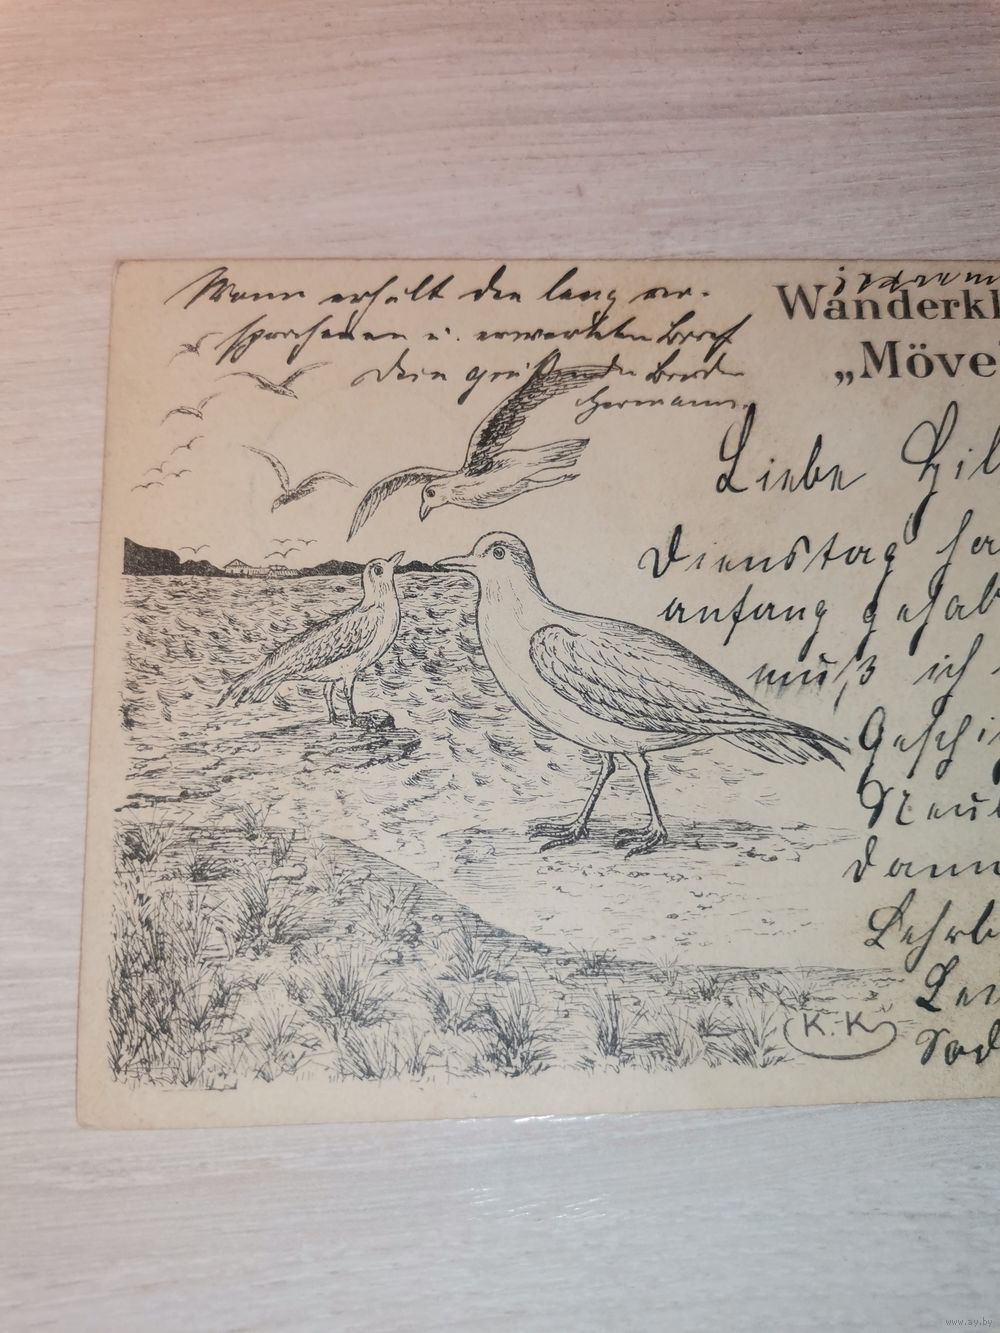 Wann erhält den lang ver-
sprochenen u. erwarteten Brief
Dein grüßender Bruder
Hermann.
Wanderkl
„Möve"
Liebe Hil
Dienstag ha
anfang gehab
muß ich
Geschi
Neu
dann
Lehrb
K.K
www.ay.by